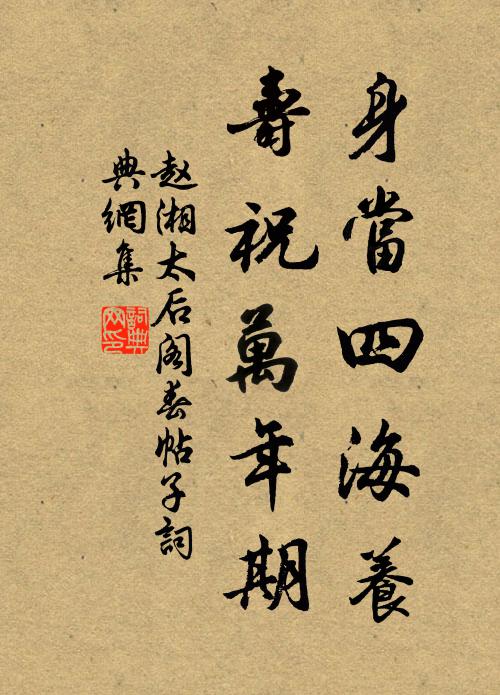 身當四海養
壽祝萬年期
赵湘太后阁春帖子詞
典網集
詞典
网印